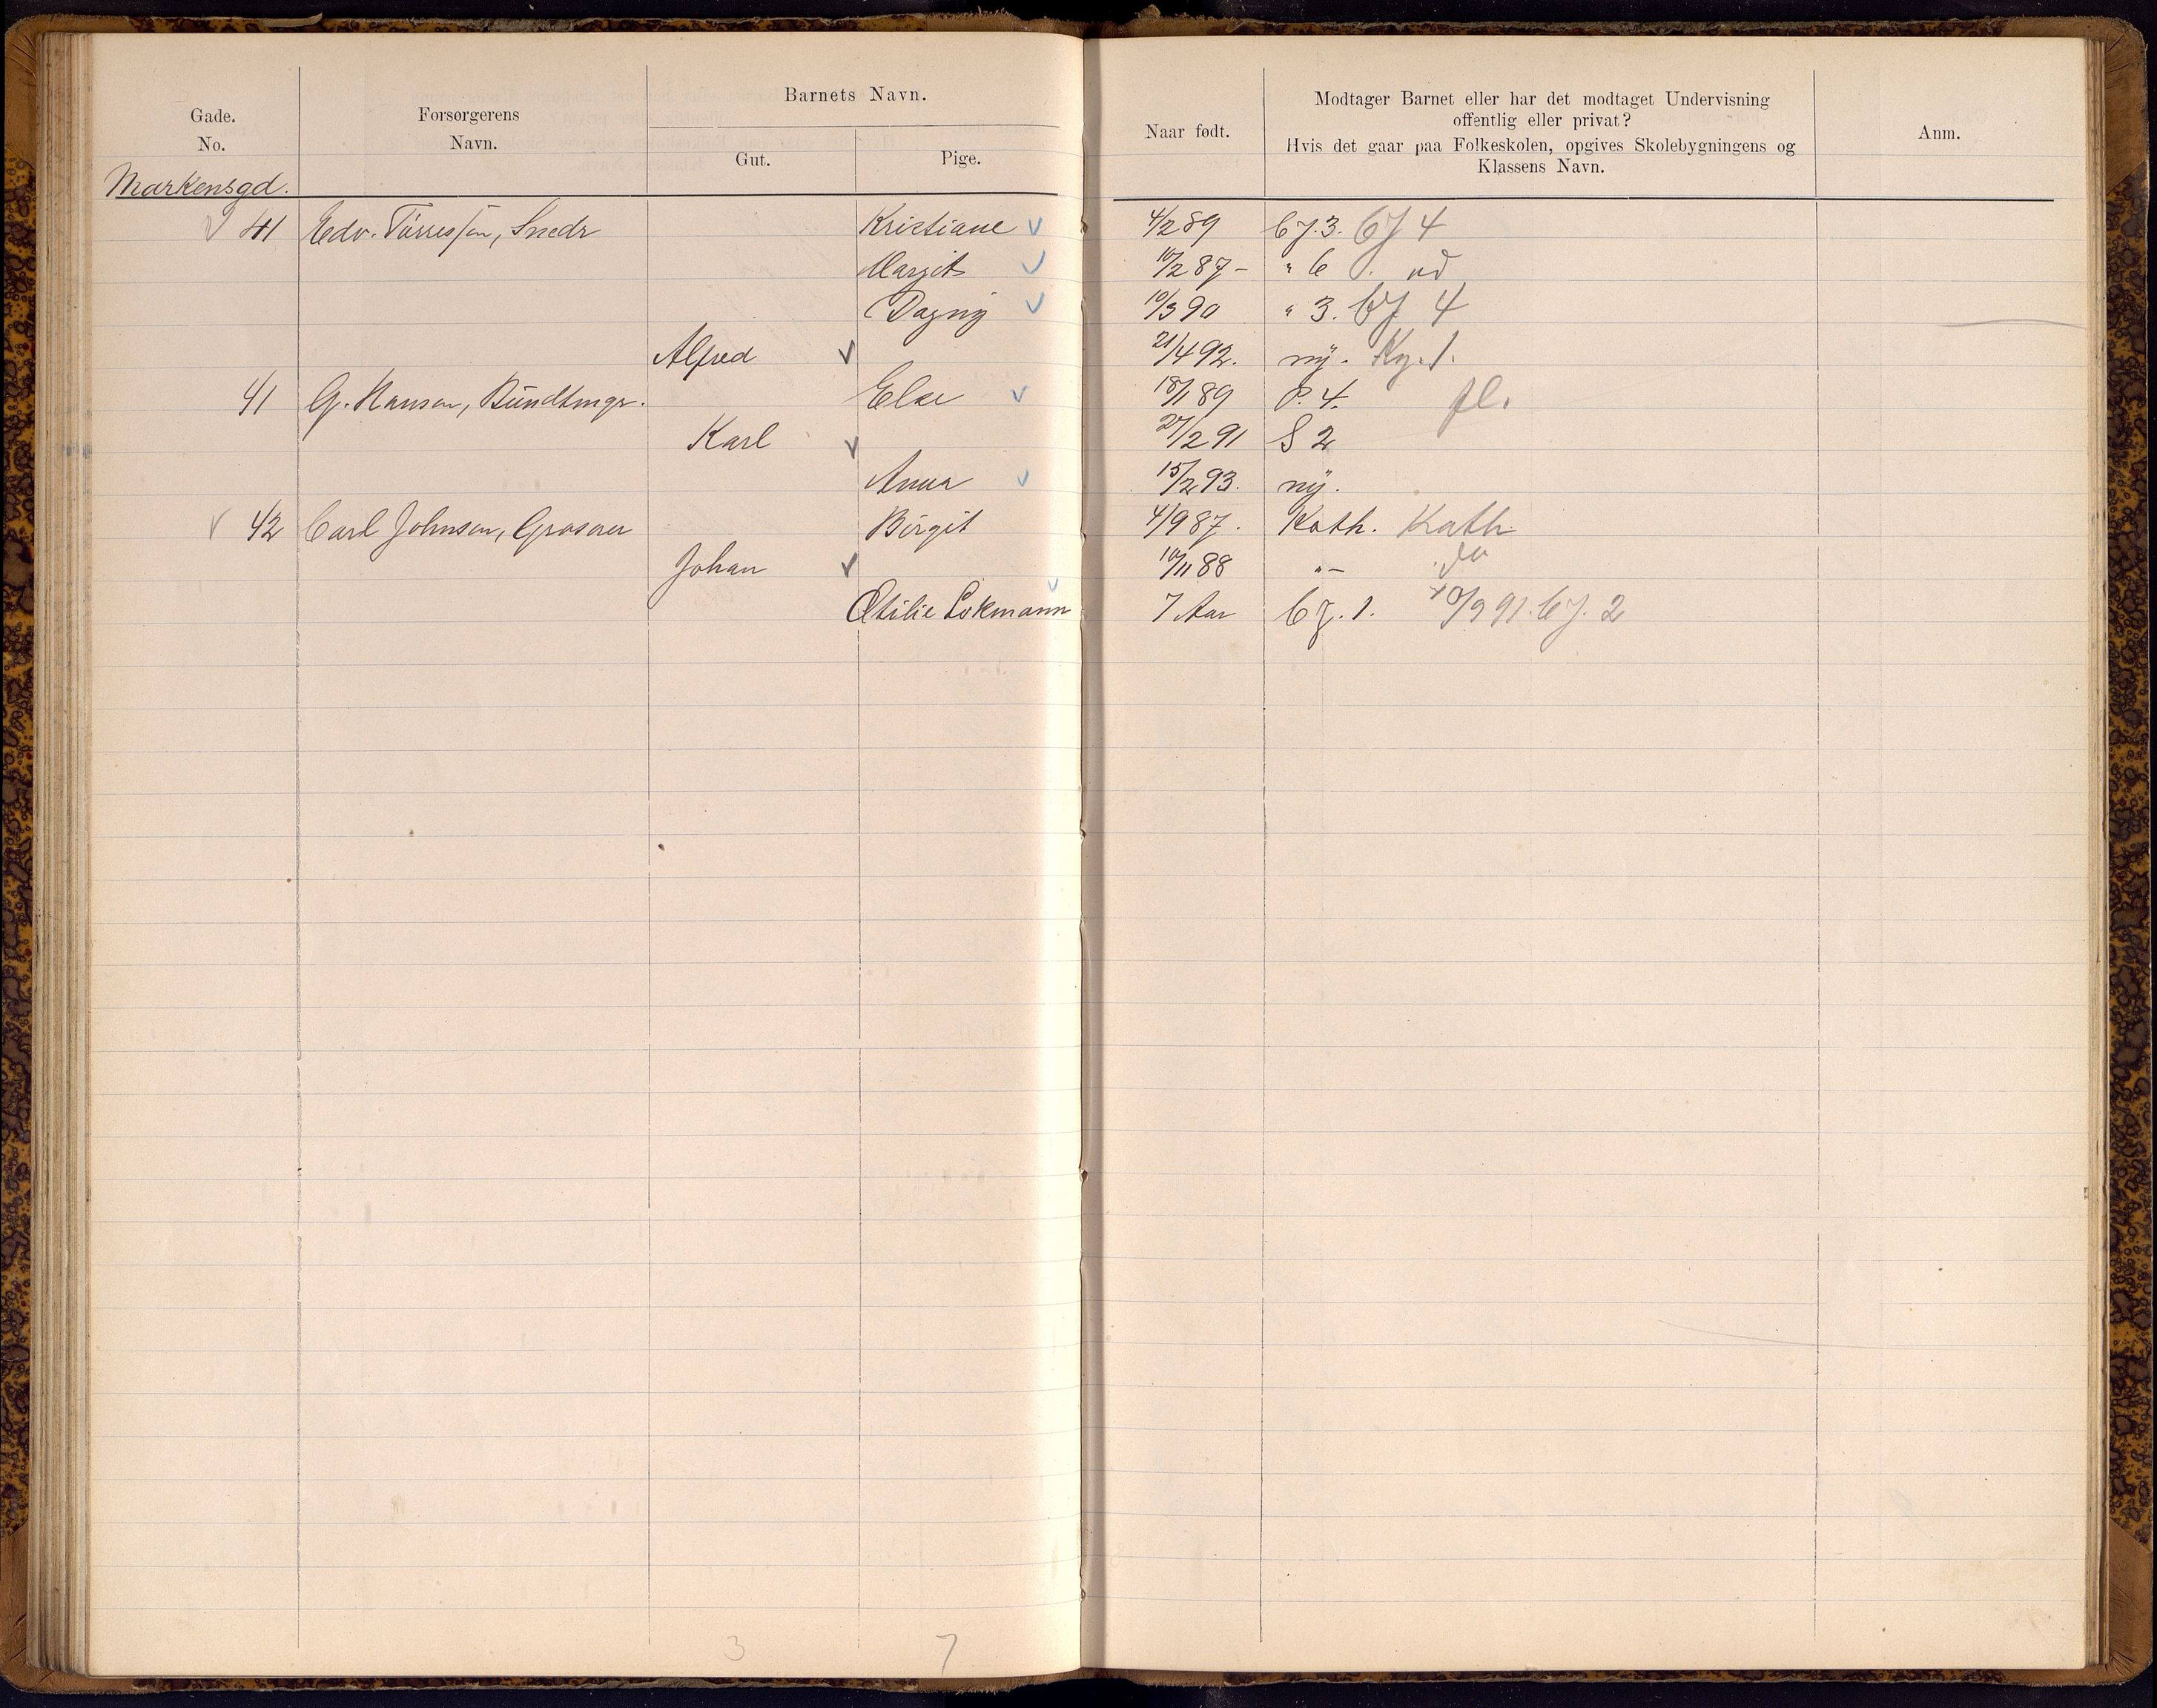 Gade.
No.
Forsørgerens
Navn.
Barnets Navn.
Gut.
Pige.
Naar født.
Modtager Barnet eller har det modtaget Undervisning
offentlig eller privat?
Hvis det gaar paa Folkeskolen, opgives Skolebygningens og
Klassens Navn.
Anm.
Markensgd.
41 Edv. Tørressen, Snedr Kristiane 4/2 89 3. 4
Margit 10/2 87 - " 6
Dagny 10/3 90 " 3. 4
Alfred 21/4 92. ny. Kg. 1.
41 G. Hansen, Bundtmgr. Else 18/1 89 P. 4. fl.
Karl 27/2 91 S 2
Anna 15/2 93. ny.
42 Carl Johnsen, Grosser Birgit 4/9 87. Kath. Kath
Johan 10/11 88 "– do
Otilie Lokmann 7 Aar 1. 10/9 91. 2
3 7